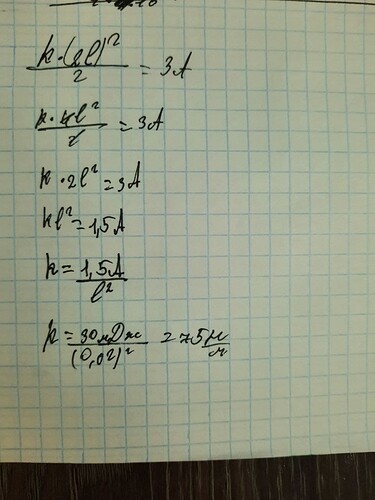 k·(2l)² / 2 = 3A
k·4l² / 2 = 3A
k·2l² = 3A
kl² = 1,5A
k = 1,5A / l²
k = 30мДж / (0,02)² = 75 Н/м